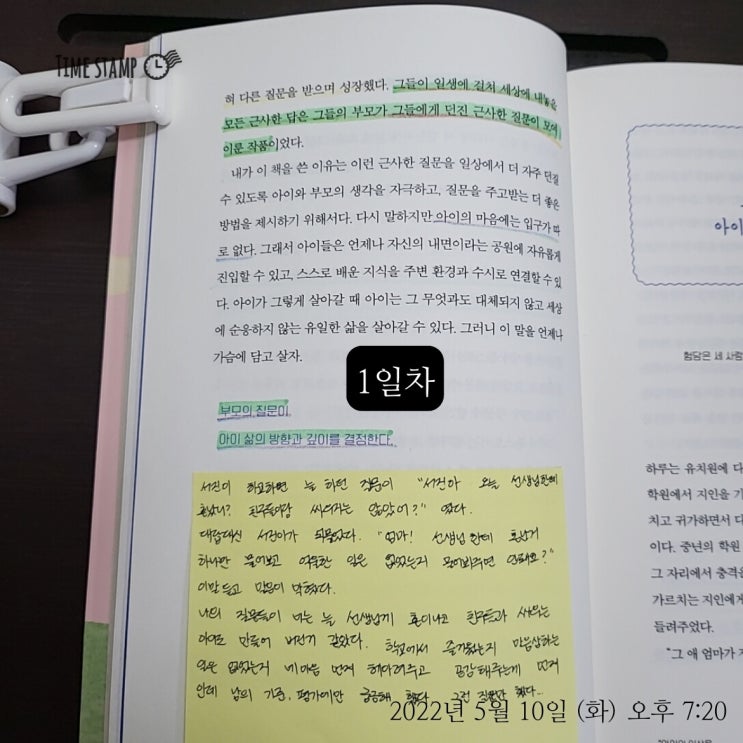 TIME STAMP
혀 다른 질문을 받으며 성장했다. 그들이 일생에 걸쳐 세상에 내놓은
모든 근사한 답은 그들의 부모가 그들에게 던진 근사한 질문이 모여
이룬 작품이었다.
내가 이 책을 쓴 이유는 이런 근사한 질문을 일상에서 더 자주 던질
수 있도록 아이와 부모의 생각을 자극하고, 질문을 주고받는 더 좋은
방법을 제시하기 위해서다. 다시 말하지만 아이의 마음에는 입구가 따
로 없다. 그래서 아이들은 언제나 자신의 내면이라는 공원에 자유롭게
진입할 수 있고, 스스로 배운 지식을 주변 환경과 수시로 연결할 수 있
다. 아이가 그렇게 살아갈 때 아이는 그 무엇과도 대체되지 않고 세상
에 순응하지 않는 유일한 삶을 살아갈 수 있다. 그러니 이 말을 언제나
가슴에 담고 살자.
1일차
부모의 질문이
아이 삶의 방향과 깊이를 결정한다.
서진이 하교하면 늘 하던 질문이 "서진아 오늘 선생님한테
혼났니? 친구들이랑 싸우지는 않았어?" 였다.
대답대신 서진이가 되물었다. "엄마! 선생님한테 혼난거
하나만 물어보고 속상한 일은 없었는지 물어봐주면 안돼요?"
이말 듣고 말문이 막혔다.
나의 질문들이 너는 늘 선생님께 혼이나고 친구들과 싸우는
아이로 만들어 버린거 같았다. 학교에서 즐거웠는지 마음상하는
일은 없었는지 네 마음 먼저 헤아려주고 공감해주는게 먼저
인데 남의 기준, 평가에만 궁금해 했다. 그런 질문만 했다...
아이
험담은 세 사람
하루는 유치원에 다
학원에서 지인을 기
치고 귀가하면서 다
이다. 중년의 학원
그 자리에서 충격을
가르치는 지인에게
들려주었다.
"그 애 엄마가 자
2022년 5월 10일 (화) 오후 7:20